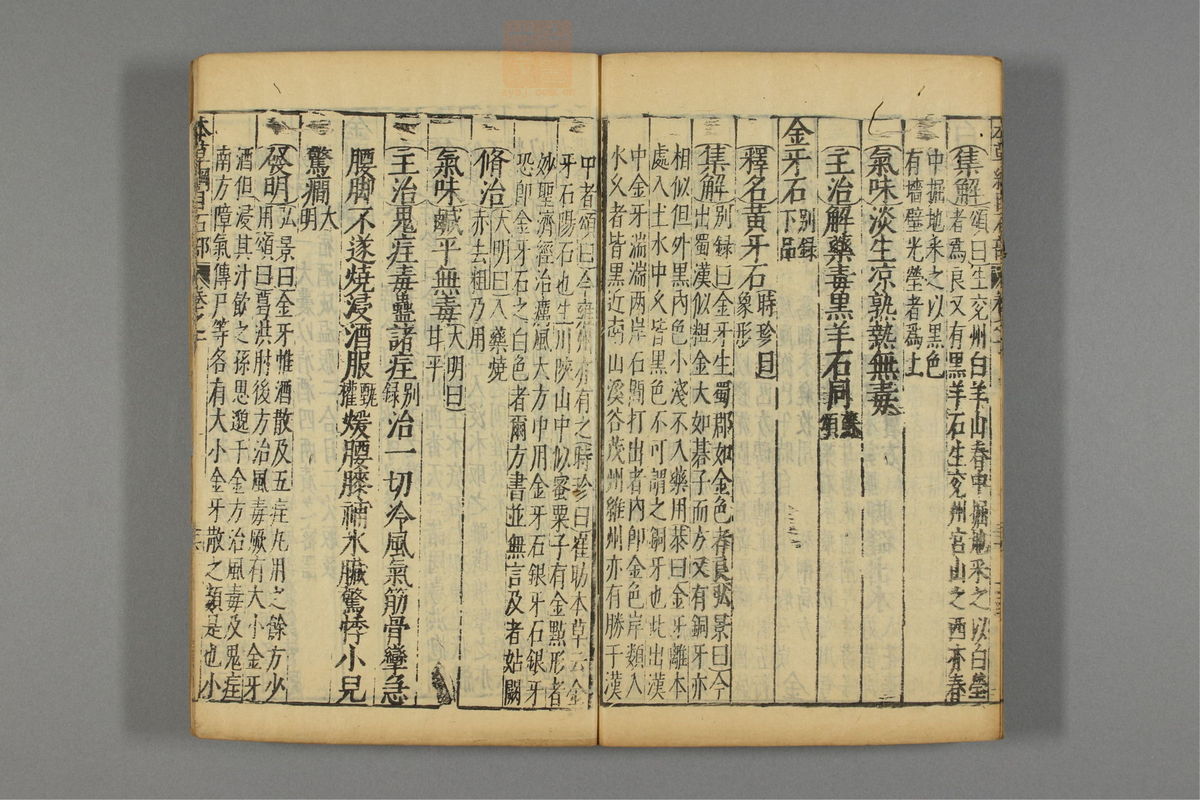 集解頌曰生兗州白羊山春中掘地采之以白瑩
者為良又有黑羊石生兗州宮山之西亦有春
中掘地采之以黑色
有墻壁光瑩者為上
氣味淡生涼熟熱無毒
主治解藥毒黑羊石同蘇頌
金牙石別錄下品
釋名黃牙石時珍曰象形
集解別錄曰金牙生蜀郡如金色者良弘景曰今
出蜀漢似粗金大如棊子而方又有銅牙亦
相似但外黑內色小淺不入藥用恭曰金牙離本
處入土水中久皆黑色不可謂之銅牙也此出漢
中金牙湍湍兩岸石間打出者內即金色岸頹入
水久者皆黑近南山溪谷茂州雍州亦有勝于漢
中者頌曰今雍州亦有之時珍曰崔昉本草云金
牙石陽石也生川陝山中似蜜栗子有金點形者
妙聖濟經治癘風大方中用金牙石銀牙石銀牙
恐即金牙石之白色者爾方書並無言及者姑闕
修治大明曰入藥燒
赤去粗乃用
氣味鹹平無毒大明曰甘平
主治鬼疰毒蠱諸疰別錄治一切冷風氣筋骨攣急
腰脚不遂燒浸酒服甄權煖腰膝補水臟驚悸小兒
驚癇大明
發明弘景曰金牙惟酒散及五疰丸用之餘方少
用頌曰葛洪肘後方治風毒厥有大小金牙
酒但浸其汁飲之孫思邈千金方治風毒及鬼疰
南方瘴氣傳尸等各有大小金牙散之類是也小
本草綱目石部
卷之十